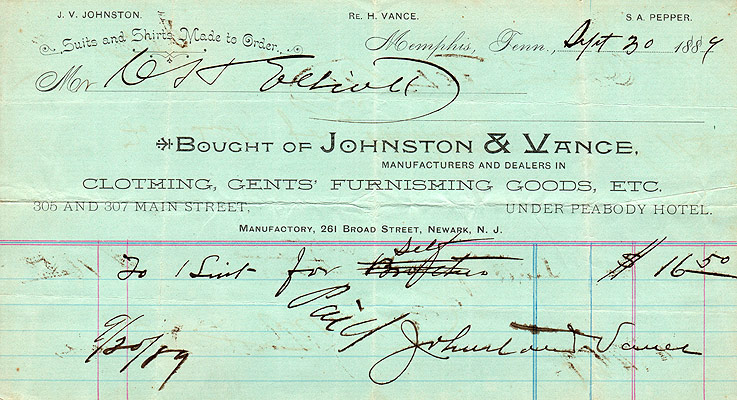 J. V. JOHNSTON. RE. H. VANCE. S A. PEPPER.
Suits and Shirts Made to Order.
Memphis, Tenn., Sept 30 1889
Mr
Bought of JOHNSTON & VANCE,
MANUFACTURERS AND DEALERS IN
CLOTHING, GENTS' FURNISHING GOODS, ETC.
305 AND 307 MAIN STREET, UNDER PEABODY HOTEL.
MANUFACTORY, 261 BROAD STREET, NEWARK, N. J.
Self
To 1 Suit for $ 16 50
Paid
9/30/89 Johnston and Vance